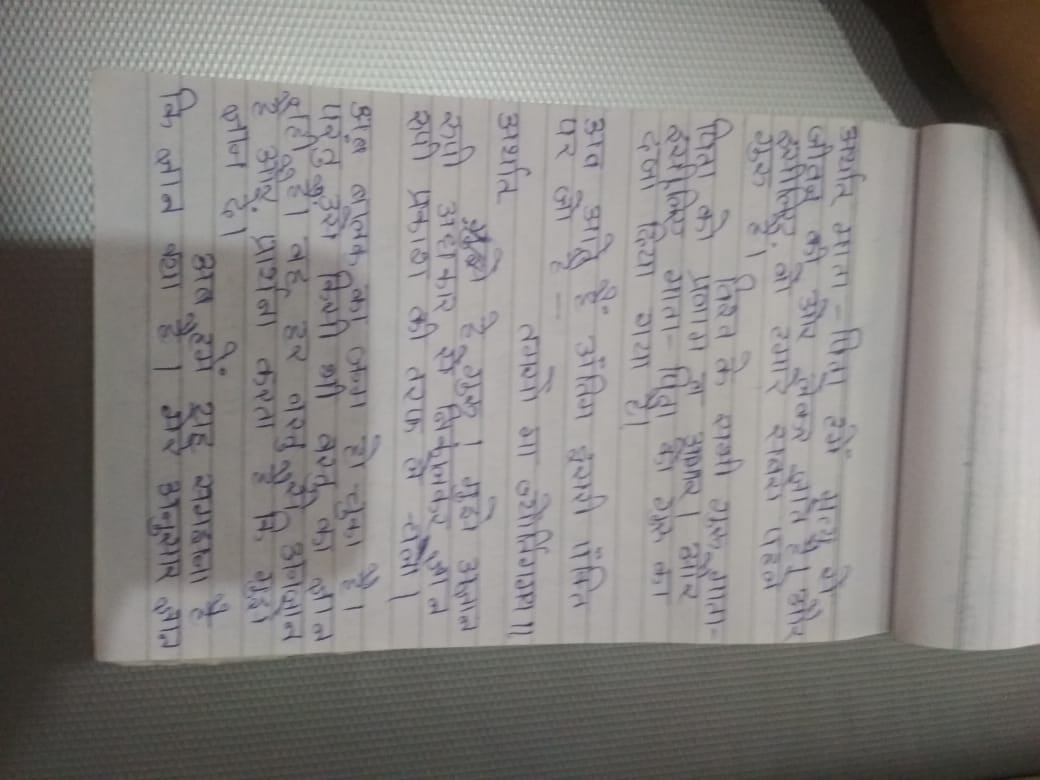 अर्थात् माता-पिता हमें सत्य से
जीवन की ओर लेकर जाते है। और
इसीलिए वो हमारे सबसे पहले
गुरु है।
विश्व के सभी गुरु माता-
पिता को प्रणाम व आभार। और
इसीलिए माता-पिता को गुरु का
दर्जा दिया गया है।
अब आते हैं अंतिम दूसरी पंक्ति
पर जो है –
तमसो मा ज्योतिर्गमय॥
अर्थात्
हे गुरु। मुझे अज्ञान
रूपी अंधकार से निकालकर ज्ञान
रूपी प्रकाश की तरफ ले चलो।
अब बालक का जन्म हो चुका है।
परंतु उसे किसी भी वस्तु का ज्ञान
नहीं है। वह हर वस्तु से अनजान
है और प्रार्थना करता है कि मुझे
ज्ञान दे।
अब हमें यह समझना है
कि ज्ञान क्या है। मेरे अनुसार ज्ञान